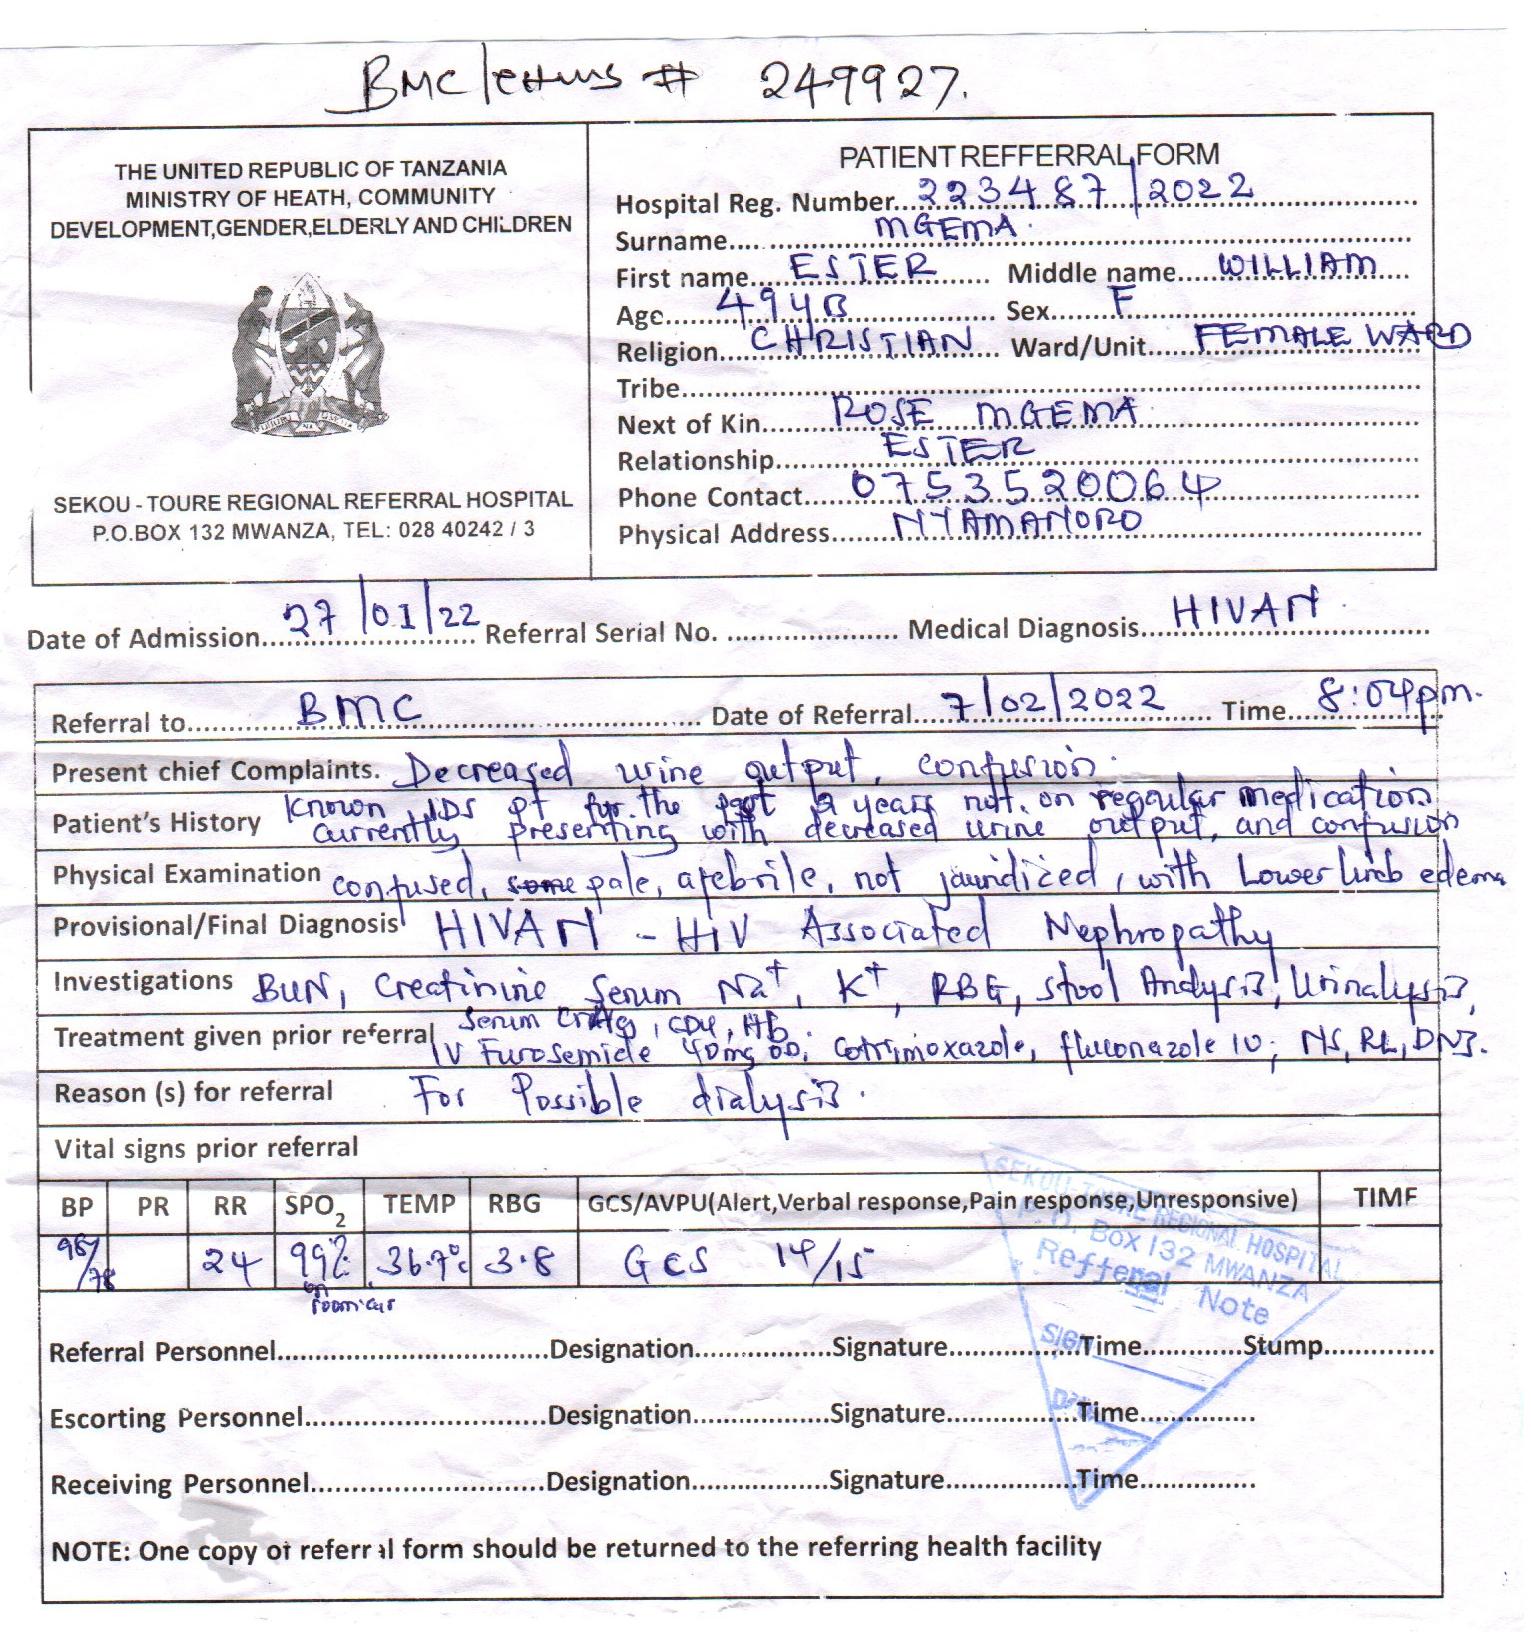 BMC/ # 249927.
THE UNITED REPUBLIC OF TANZANIA
MINISTRY OF HEATH, COMMUNITY
DEVELOPMENT,GENDER,ELDERLY AND CHILDREN
SEKOU - TOURE REGIONAL REFERRAL HOSPITAL
P.O.BOX 132 MWANZA, TEL: 028 40242 / 3
PATIENT REFFERRAL FORM
Hospital Reg. Number...223487/2022
Surname....MGEMA
First name...ESTER Middle name...WILLIAM
Age...49 Sex...F
Religion...CHRISTIAN Ward/Unit...FEMALE WARD
Tribe...
Next of Kin...ROSE MGEMA
Relationship...ESTER
Phone Contact...0753520064
Physical Address...NYAMANORO
Date of Admission...27/01/22 Referral Serial No. ... Medical Diagnosis...HIVAN
Referral to...BMC Date of Referral...7/02/2022 Time...8:04pm.
Present chief Complaints. Decreased urine output, confusion.
Patient's History Known pt for the past 2 years not on regular medication
currently presenting with decreased urine output, and confusion
Physical Examination confused, some pale, afebrile, not jaundiced, with Lower limb edema
Provisional/Final Diagnosis HIVAN - HIV Associated Nephropathy
Investigations BUN, Creatinine Serum Na+, K+, RBG, stool Analysis, Urinalysis,
Serum CrAg, CD4, Hb.
Treatment given prior referral IV Furosemide 40mg OD, Cotrimoxazole, fluconazole IV, NS, RL, DNS.
Reason (s) for referral For Possible dialysis.
Vital signs prior referral
BP PR RR SPO2 TEMP RBG GCS/AVPU(Alert,Verbal response,Pain response,Unresponsive) TIME
98/78 24 99% on room air 36.7°c 3.8 GCS 14/15
SEKOU-TOURE REGIONAL HOSPITAL
P. O. Box 132 MWANZA
Refferal Note
SIGN
DATE
Referral Personnel...Designation...Signature...Time...Stump...
Escorting Personnel...Designation...Signature...Time...
Receiving Personnel...Designation...Signature...Time...
NOTE: One copy of referral form should be returned to the referring health facility